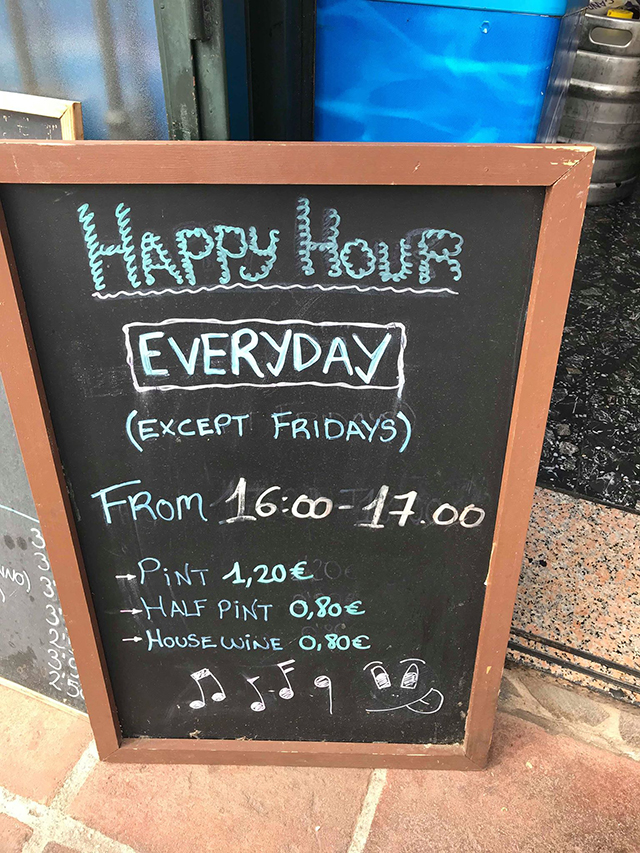 HAPPY HOUR
EVERYDAY
(EXCEPT FRIDAYS)
FROM 16:00-17.00
→PINT 1,20€
→HALF PINT 0,80€
→HOUSE WINE 0,80€